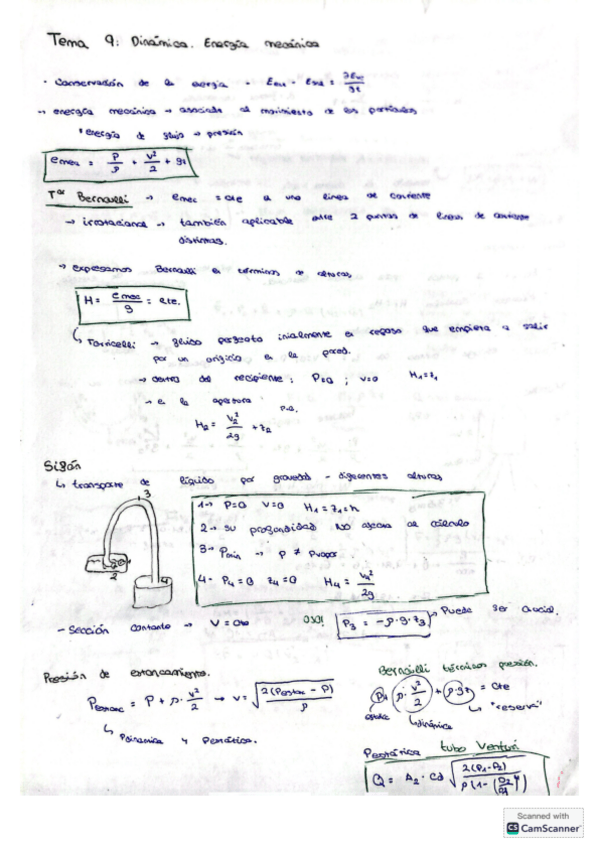 Tema 9: Dinámica. Energía mecánica
· Conservación de la energía - Eent - Esal = ∂Esis/∂t
→ energía mecánica → asociada al movimiento de las partículas
* energía de flujo → presión
emec = P/ρ + v²/2 + gz
Tª Bernoulli → emec = cte a una línea de corriente
→ irrotacional → también aplicable entre 2 puntos de líneas de corriente
distintas.
→ expresamos Bernoulli en términos de alturas
H = emec/g = cte.
↳ Torricelli → fluido perfecto inicialmente en reposo que empieza a salir
por un orificio en la pared.
→ dentro del recipiente: P=0 ; v=0 H1=z1
→ en la apertura P=0
H2 = v2²/2g + z2
Sifón
↳ transporte de líquido por gravedad - diferentes alturas
3
2
4
1→ P=0 v=0 H1=z1=h
2→ su profundidad NO afecta al cálculo
3→ Pmin → P ≠ Pvapor
4- P4=0 z4=0 H4 = v4²/2g
- Sección constante → v = cte
OJO! P3 = -ρ·g·z3 → Puede ser crucial.
Presión de estancamiento.
Pestanc = P + ρ·v²/2 → v = √(2(Pestac - P)/ρ)
↳ Pdinamica y Pestática.
Bernoulli términos presión.
P+ ρ·v²/2 + ρ·gz = cte
↳ dinámica
↳ "reserva"
tubo Venturi
Q = A2 · Cd √(2(P1-P2)/ρ(1-(D2/D1)⁴))
Scanned with
CS CamScanner